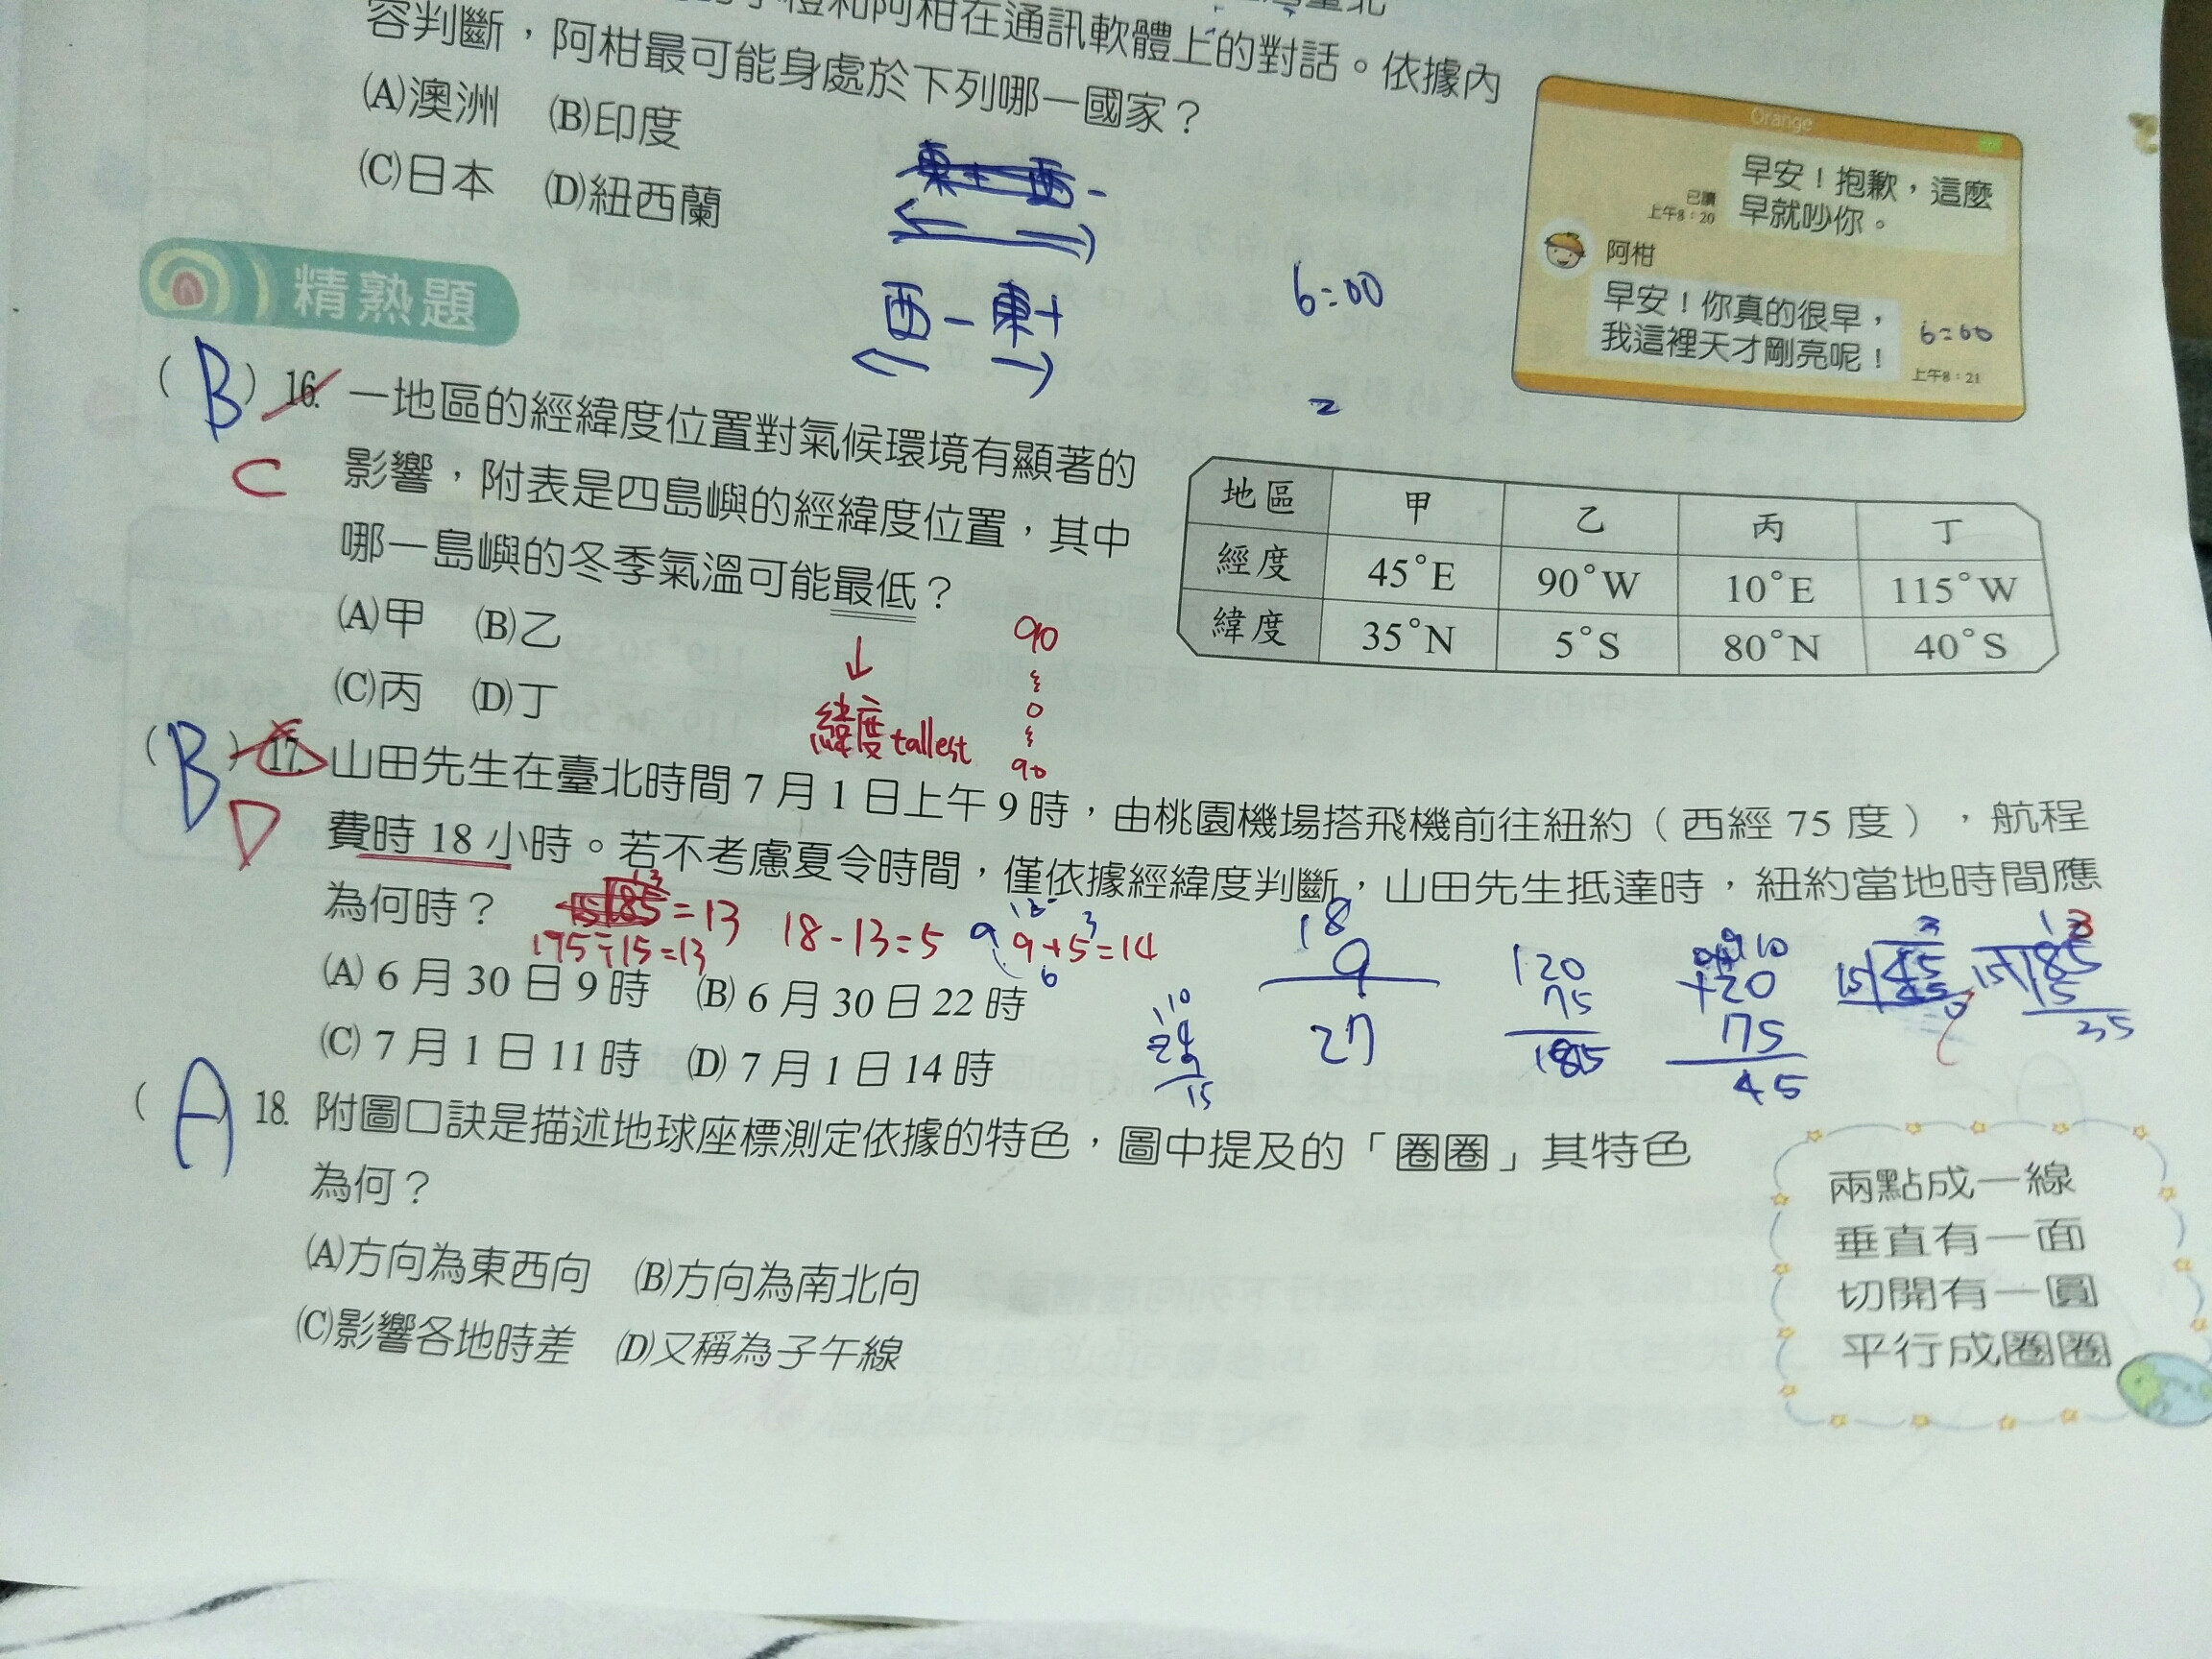 和阿柑在通訊軟體上的對話。依據內
容判斷，阿柑最可能身處於下列哪一國家？
(A)澳洲 (B)印度
(C)日本 (D)紐西蘭
Orange
早安！抱歉，這麼
早就吵你。
已讀
上午8：20
阿柑
早安！你真的很早，
我這裡天才剛亮呢！
6=00
上午8：21
東+ 西-
西- 東+
6:00
=
精熟題
(B) 16. 一地區的經緯度位置對氣候環境有顯著的
C
影響，附表是四島嶼的經緯度位置，其中
哪一島嶼的冬季氣溫可能最低？
(A)甲 (B)乙
(C)丙 (D)丁
緯度 tallest
90
0
90
地區 甲 乙 丙 丁
經度 45°E 90°W 10°E 115°W
緯度 35°N 5°S 80°N 40°S
(B) 17. 山田先生在臺北時間 7 月 1 日上午 9 時，由桃園機場搭飛機前往紐約（西經 75 度），航程
D
費時 18 小時。若不考慮夏令時間，僅依據經緯度判斷，山田先生抵達時，紐約當地時間應
為何時？
=13
195÷15=13
18-13=5
9+5=14
(A) 6 月 30 日 9 時 (B) 6 月 30 日 22 時
(C) 7 月 1 日 11 時 (D) 7 月 1 日 14 時
18
9
27
120
75
+20
75
45
35
15
(A) 18. 附圖口訣是描述地球座標測定依據的特色，圖中提及的「圈圈」其特色
為何？
(A)方向為東西向 (B)方向為南北向
(C)影響各地時差 (D)又稱為子午線
兩點成一線
垂直有一面
切開有一圓
平行成圈圈